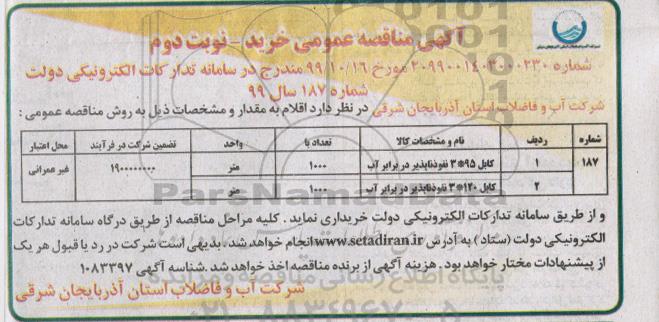 آگهی مناقصه عمومی خرید - نوبت دوم
شماره ۲۰۹۹۰۰۱۴۰۲۰۰۰۲۳۰ مورخ ۹۹/۱۰/۱۶ مندرج در سامانه تدارکات الکترونیکی دولت
شماره ۱۸۷ سال ۹۹
شرکت آب و فاضلاب استان آذربایجان شرقی در نظر دارد اقلام به مقدار و مشخصات ذیل به روش مناقصه عمومی :
شماره ردیف نام و مشخصات کالا تعداد یا واحد تضمین شرکت در فرآیند محل اعتبار
۱۸۷ ۱ کابل ۹۵*۳ نفوذناپذیر در برابر آب ۱۰۰۰ متر ۱۹۰۰۰۰۰۰۰۰ غیر عمرانی
۲ کابل ۱۲۰*۳ نفوذناپذیر در برابر آب ۱۰۰۰ متر
و از طریق سامانه تدارکات الکترونیکی دولت خریداری نماید . کلیه مراحل مناقصه از طریق درگاه سامانه تدارکات
الکترونیکی دولت (ستاد) به آدرس www.setadiran.ir انجام خواهد شد . بدیهی است شرکت در رد یا قبول هر یک
از پیشنهادات مختار خواهد بود . هزینه آگهی از برنده مناقصه اخذ خواهد شد .شناسه آگهی ۱۰۸۳۳۹۷
شرکت آب و فاضلاب استان آذربایجان شرقی
ParsNamadData
پایگاه اطلاع رسانی مناقصه و مزایده
۰۲۱-۸۸۳۴۹۶۷۰-۵